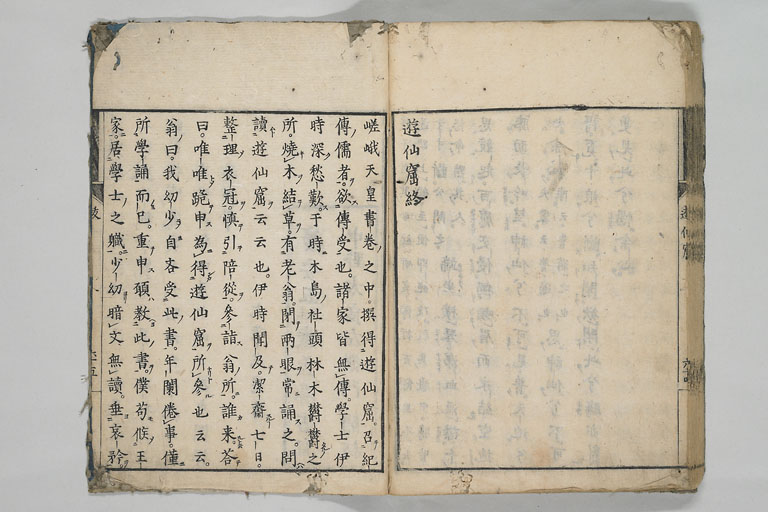 遊仙窟終
嵯峨天皇書卷之中。撰得遊仙窟。召紀
傳儒者。欲傳受也。諸家皆無傳。學士伊
時深愁歎。于時木島社頭林木欝欝之
所。燒木結草。有老翁。閉兩眼常誦之。問
讀遊仙窟云云也。伊時聞及。潔齋七日。
整理衣冠。愼引陪從。參詣翁所。誰来。答
曰。唯唯跪申。為得遊仙窟所參也云云。
翁曰。我幼少自吝受此書。年闌倦事。僅
所學誦而已。重申願教此書。僕苟候王
家。居學士之職。少幼暗文無讀。垂哀矜。